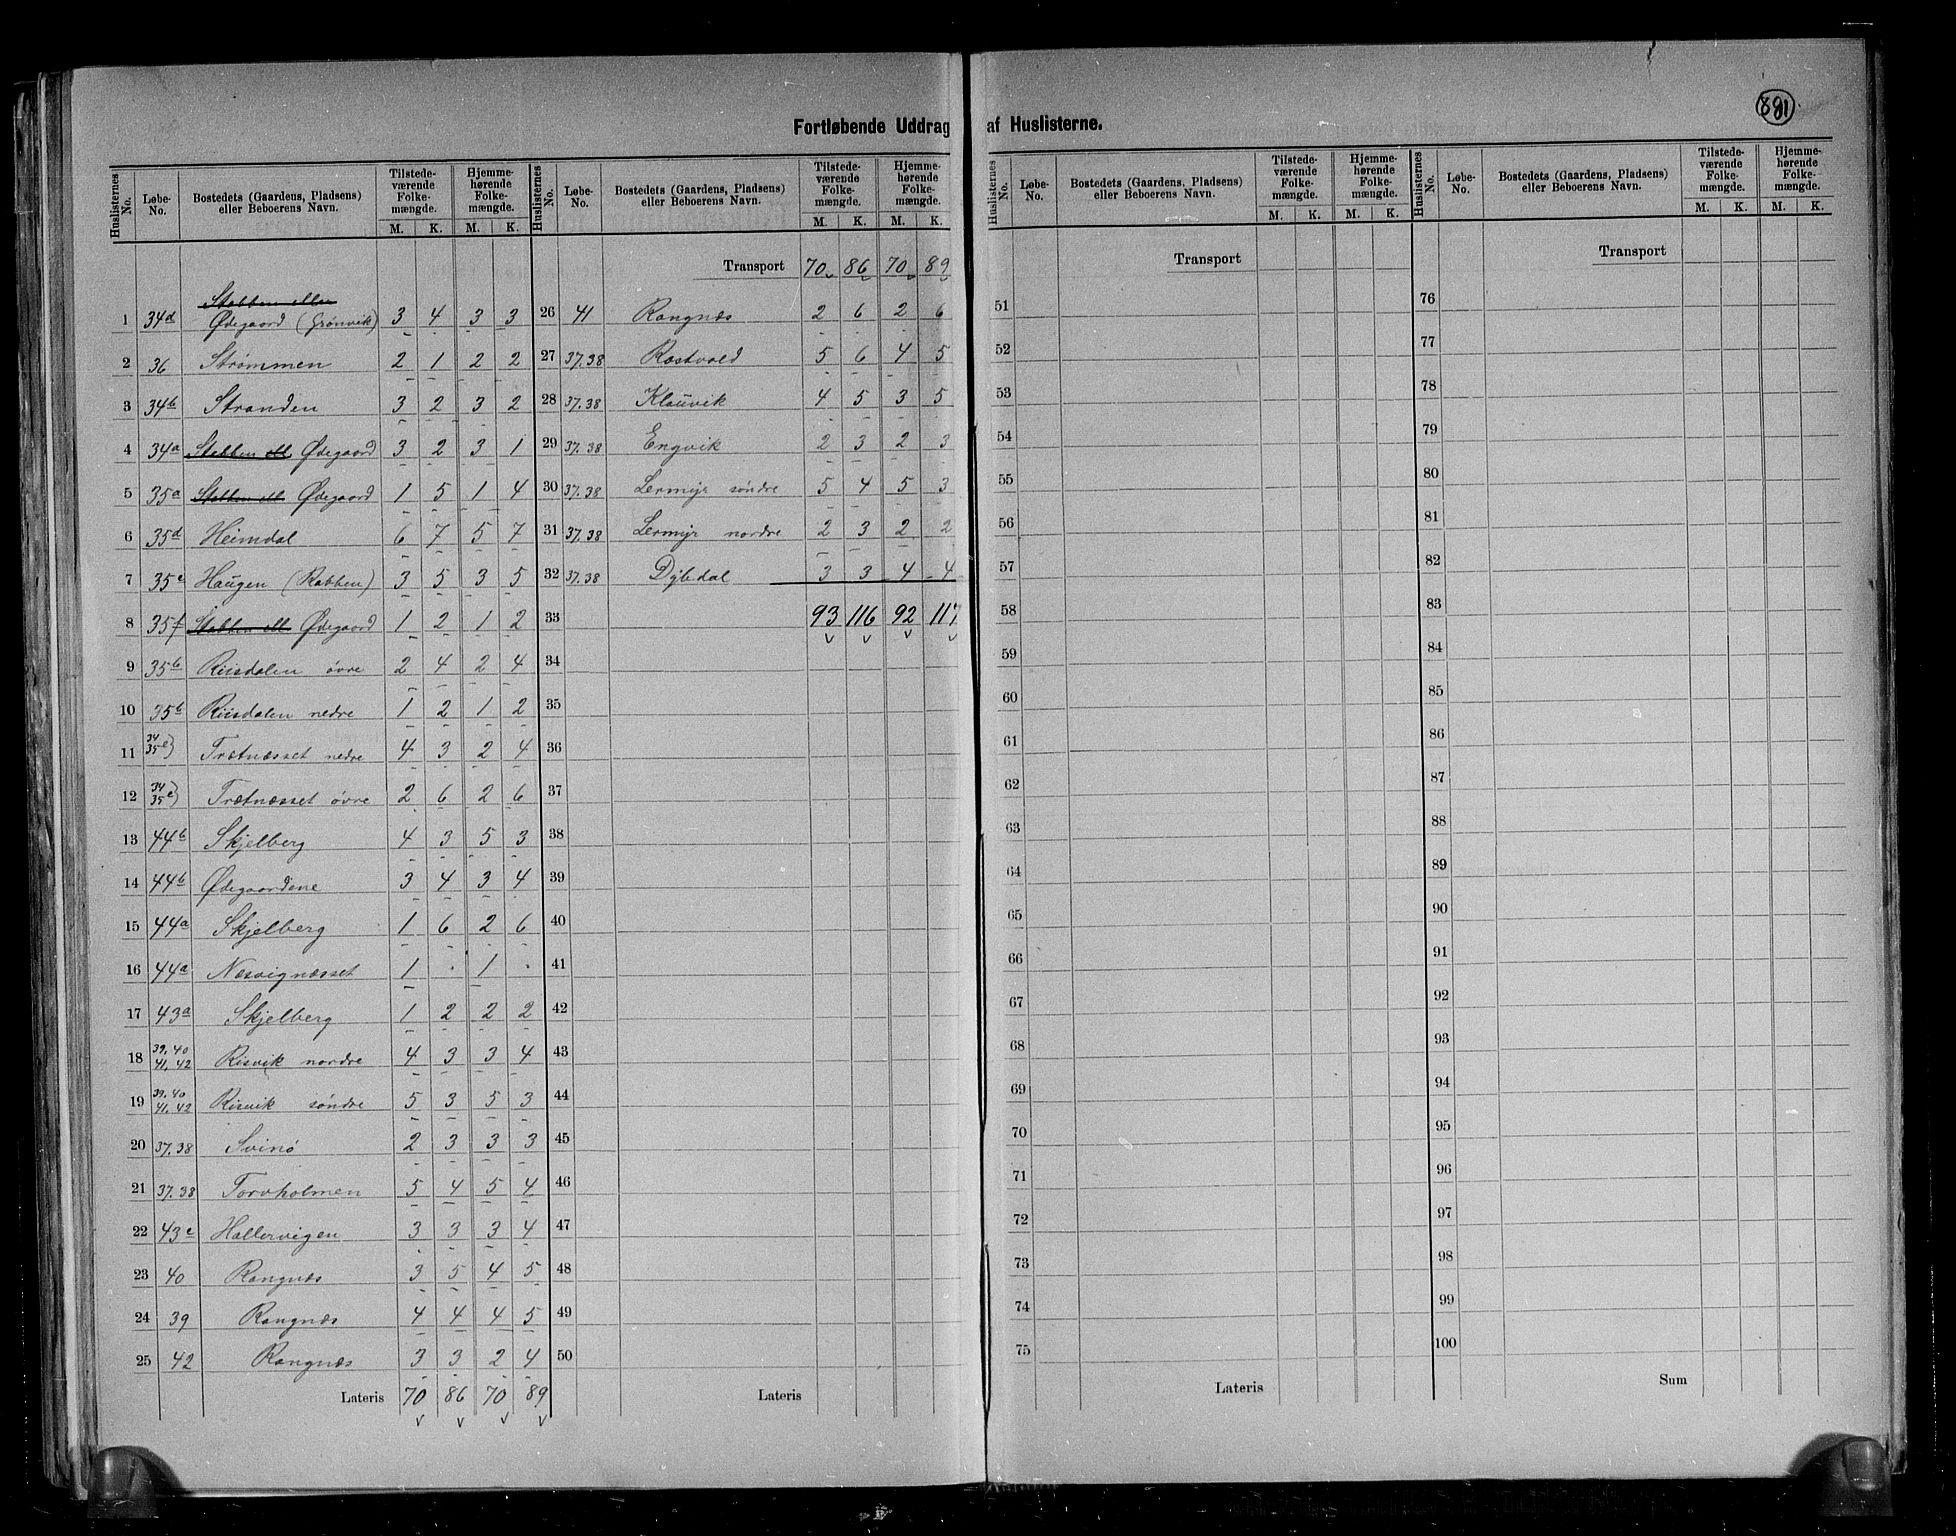 881
Fortløbende Uddrag af Huslisterne.
Huslisternes No. Løbe-No. Bostedets (Gaardens, Pladsens) eller Beboerens Navn. Tilstedeværende Folkemængde. M. K. Hjemmehørende Folkemængde. M. K.
Stabben eller
1 34d Ødegaard (Grønvik) 3 4 3 3
2 36 Strømmen 2 1 2 2
3 34b Stranden 3 2 3 2
4 34a Stabben ell Ødegaard 3 2 3 1
5 35a Stabben ell Ødegaard 1 5 1 4
6 35d Heimdal 6 7 5 7
7 35c Haugen (Rabben) 3 5 3 5
8 35f Stabben ell Ødegaard 1 2 1 2
9 35b Riisdalen øvre 2 4 2 4
10 35b Riisdalen nedre 1 2 1 2
11 34 35e) Trætnæsset nedre 4 3 2 4
12 34 35e) Trætnæsset øvre 2 6 2 6
13 44b Skjelberg 4 3 5 3
14 44b Ødegaardene 3 4 3 4
15 44a Skjelberg 1 6 2 6
16 44a Næsvignæsset 1 · 1 ·
17 43a Skjelberg 1 2 2 2
18 39.40 41.42 Risvik nordre 4 3 3 4
19 39.40 41.42 Risvik søndre 5 3 5 3
20 37.38 Svinø 2 3 3 3
21 37.38 Torvholmen 5 4 5 4
22 43c Hallervigen 3 3 3 4
23 40 Rangnæs 3 5 4 5
24 39 Rangnæs 4 4 4 5
25 42 Rangnæs 3 3 2 4
Lateris 70 86 70 89
Huslisternes No. Løbe-No. Bostedets (Gaardens, Pladsens) eller Beboerens Navn. Tilstedeværende Folkemængde. M. K. Hjemmehørende Folkemængde. M. K.
Transport 70 86 70 89
26 41 Rangnæs 2 6 2 6
27 37.38 Rostvold 5 6 4 5
28 37.38 Klauvik 4 5 3 5
29 37.38 Engvik 2 3 2 3
30 37.38 Lermyr søndre 5 4 5 3
31 37.38 Lermyr nordre 2 3 2 2
32 37.38 Dybdal 3 3 4 4
33 93 116 92 117
34
35
36
37
38
39
40
41
42
43
44
45
46
47
48
49
50
Lateris
Huslisternes No. Løbe-No. Bostedets (Gaardens, Pladsens) eller Beboerens Navn. Tilstedeværende Folkemængde. M. K. Hjemmehørende Folkemængde. M. K.
Transport
51
52
53
54
55
56
57
58
59
60
61
62
63
64
65
66
67
68
69
70
71
72
73
74
75
Lateris
Huslisternes No. Løbe-No. Bostedets (Gaardens, Pladsens) eller Beboerens Navn. Tilstedeværende Folkemængde. M. K. Hjemmehørende Folkemængde. M. K.
Transport
76
77
78
79
80
81
82
83
84
85
86
87
88
89
90
91
92
93
94
95
96
97
98
99
100
Sum